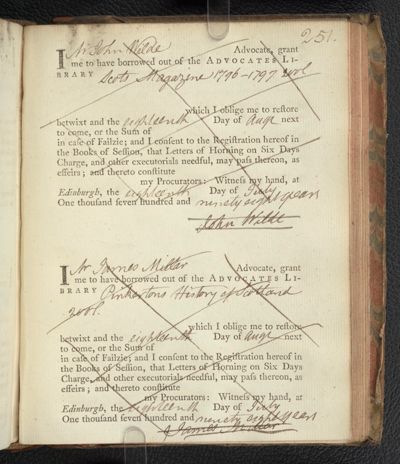 251.
I Mr John Wilde Advocate, grant
me to have borrowed out of the ADVOCATES LI-
BRARY Scots Magazine 1796–1797 2 vol
which I oblige me to restore
betwixt and the eighteenth Day of Augt next
to come, or the Sum of
in case of Failzie; and I consent to the Registration hereof in
the Books of Session, that Letters of Horning on Six Days
Charge, and other executorials needful, may pass thereon, as
effeirs; and thereto constitute
my Procurators: Witness my hand, at
Edinburgh, the eighteenth Day of July
One thousand seven hundred and ninety eight years
John Wilde
I Mr James Millar Advocate, grant
me to have borrowed out of the ADVOCATES LI-
BRARY Pinkertons History of Scotland
2 vol.
which I oblige me to restore
betwixt and the eighteenth Day of Augt next
to come, or the Sum of
in case of Failzie; and I consent to the Registration hereof in
the Books of Session, that Letters of Horning on Six Days
Charge, and other executorials needful, may pass thereon, as
effeirs; and thereto constitute
my Procurators: Witness my hand, at
Edinburgh, the eighteenth Day of July
One thousand seven hundred and ninety eight years
James Millar